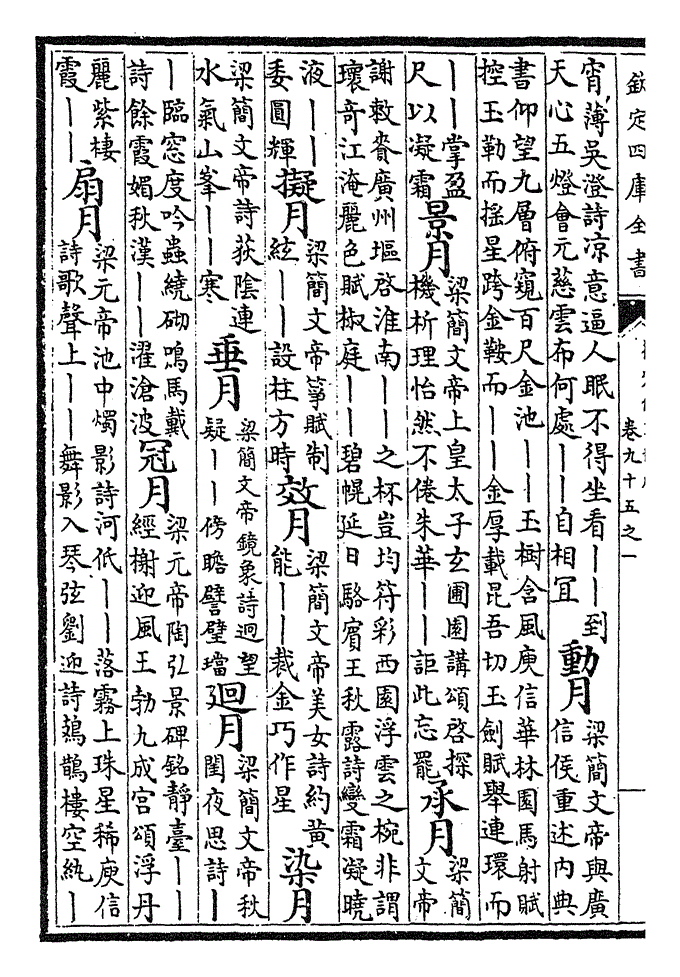 欽定四庫全書
卷九十五之一
宵薄吳澄詩涼意逼人眠不得坐看丨丨到
天心五燈會元慈雲布何處丨丨自相冝
動月
梁簡文帝與廣
信侯重述内典
書仰望九層俯窺百尺金池丨丨玉樹含風庾信華林園馬射賦
控玉勒而揺星跨金鞍而丨丨金厚載昆吾切玉劍賦舉連環而
丨丨掌盈
尺以凝霜
景月
梁簡文帝上皇太子玄圃園講頌啓探
機析理怡然不倦朱華丨丨詎此忘罷
承月
梁簡
文帝
謝敕賚廣州塸啓淮南丨丨之杯豈均符彩西園浮雲之椀非謂
瓌奇江淹麗色賦椒庭丨丨碧幌延日駱賓王秋露詩變霜凝曉
液丨丨
委圓輝
擬月
梁簡文帝箏賦制
絃丨丨設柱方時
效月
梁簡文帝美女詩約黄
能丨丨裁金巧作星
染月
梁簡文帝詩荻陰連
水氣山峯丨丨寒
垂月
梁簡文帝鏡象詩迥望
疑丨丨傍瞻譬璧璫
迴月
梁簡文帝秋
閨夜思詩丨
丨臨窓度吟蟲繞砌鳴馬戴
詩餘霞媚秋漢丨丨濯滄波
冠月
梁元帝陶弘景碑銘靜臺丨丨
經榭迎風王勃九成宫頌浮丹
麗紫棲
霞丨丨
扇月
梁元帝池中燭影詩河低丨丨落霧上珠星稀庾信
詩歌聲上丨丨舞影入琴弦劉迎詩鳷鵲樓空紈丨